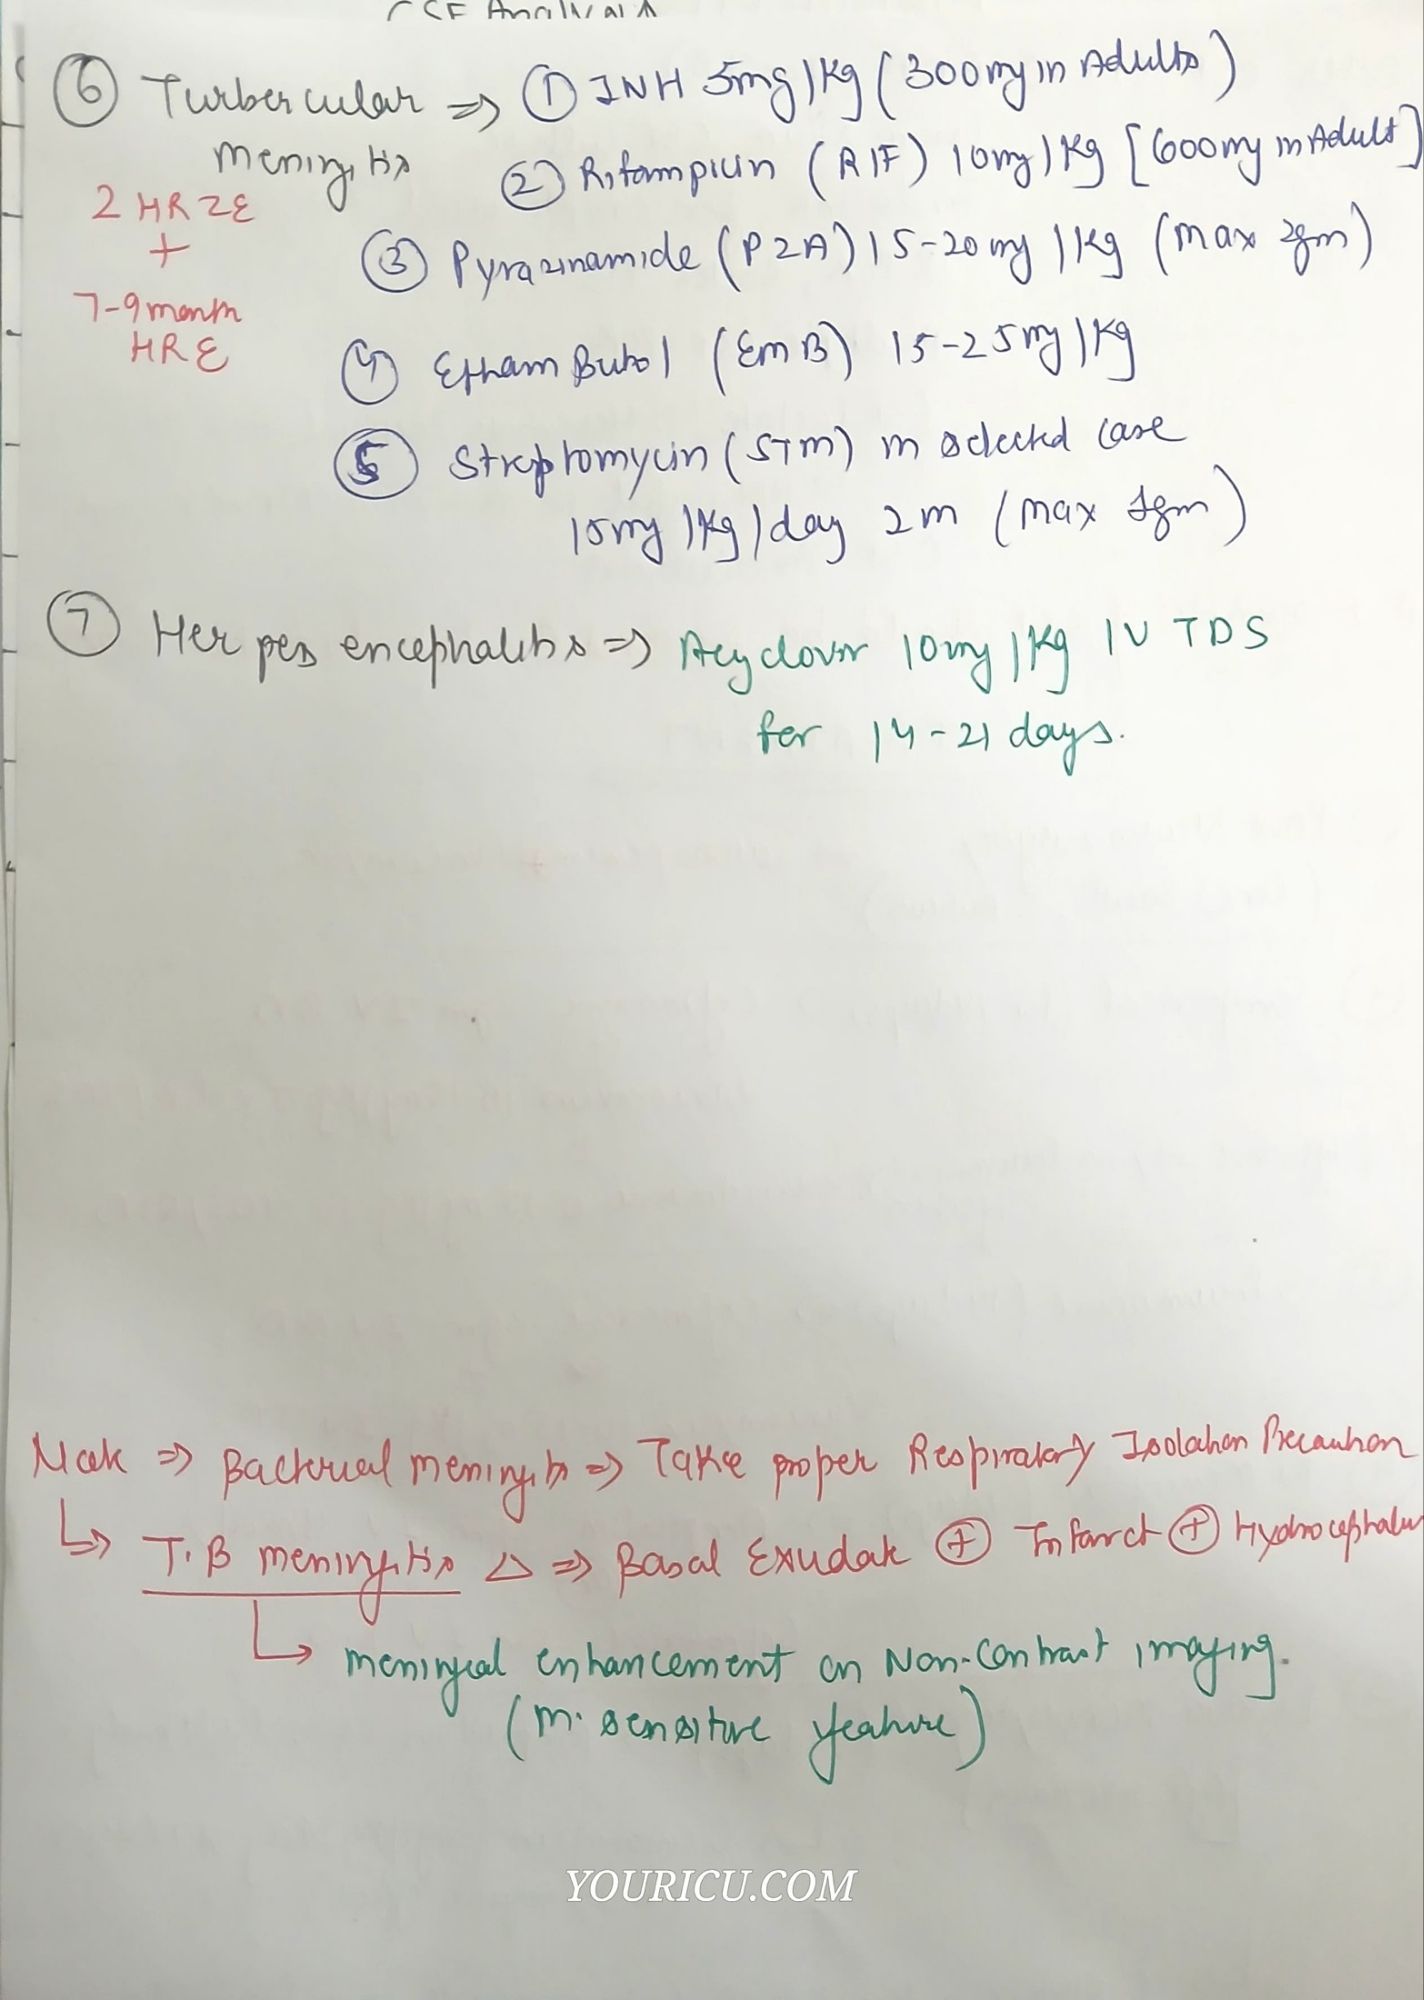 CSF Analysis
⑥ Turbercular => ① INH 5mg/kg (300mg in Adults)
meningitis
② Rifampicin (RIF) 10mg/kg [600mg in Adult]
2 HRZE
+
③ Pyrazinamide (PZA) 15-20mg/kg (max 2gm)
7-9 month
HRE
④ Ethambutol (EMB) 15-25mg/kg
⑤ Streptomycin (STM) in selected case
15mg/kg/day 2m (max 1gm)
⑦ Herpes encephalitis => Acyclovir 10mg/kg IV TDS
for 14-21 days.
Note => Bacterial meningitis => Take proper Respiratory Isolation Precaution
↳ T.B meningitis △ => Basal Exudate ⊕ Infarct ⊕ Hydrocephalus
↳ meningeal enhancement on Non-Contrast imaging.
(m. sensitive feature)
YOURICU.COM